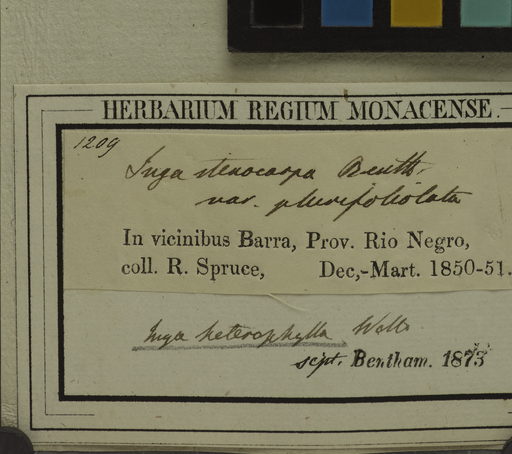 HERBARIUM REGIUM MONACENSE.
1209
Inga stenocarpa Benth.
var. plurifoliolata
In vicinibus Barra, Prov. Rio Negro,
coll. R. Spruce, Dec,-Mart. 1850-51.
Inga heterophylla Willd.
scpt. Bentham. 1873